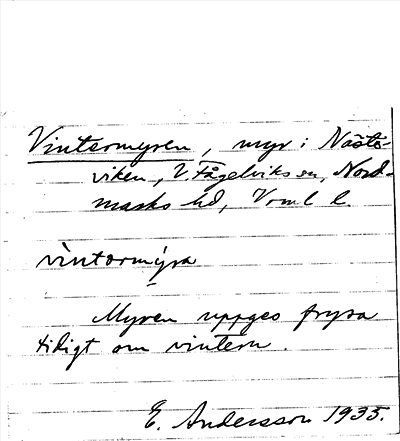 Vintermyren, myr i Nästa-
viken, V Fågelviks sn, Nord-
marks hd, Vrml l.
vìntərmy̆ra
Myren uppges frysa
tidigt om vintern.
E. Andersson 1935.